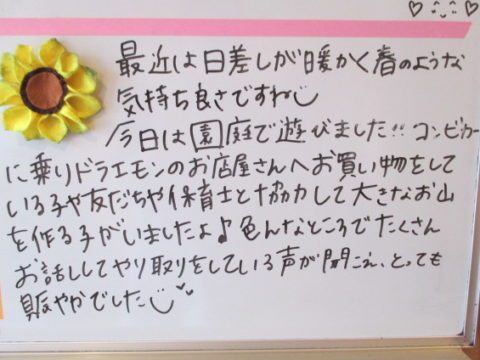 最近は日差しが暖かく春のような
気持ち良さですね
今日は園庭で遊びました!! コンビカー
に乗りドラエモンのお店屋さんへお買い物をして
いる子や友だちや保育士と協力して大きなお山
を作る子がいましたよ♪色んなところでたくさん
お話ししてやり取りをしている声が聞こえ、とっても
賑やかでした